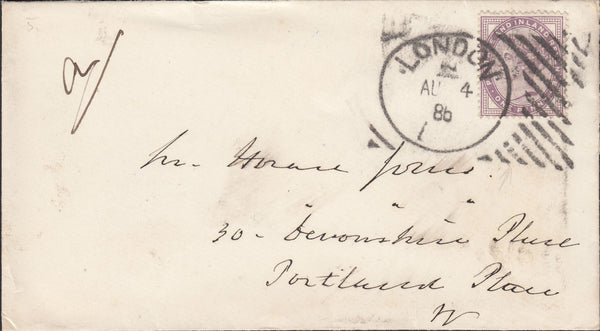 LONDON
AU 4
86
Mr. Horace Jones.
" " "
30 - Devonshire Place
Portland Place
W